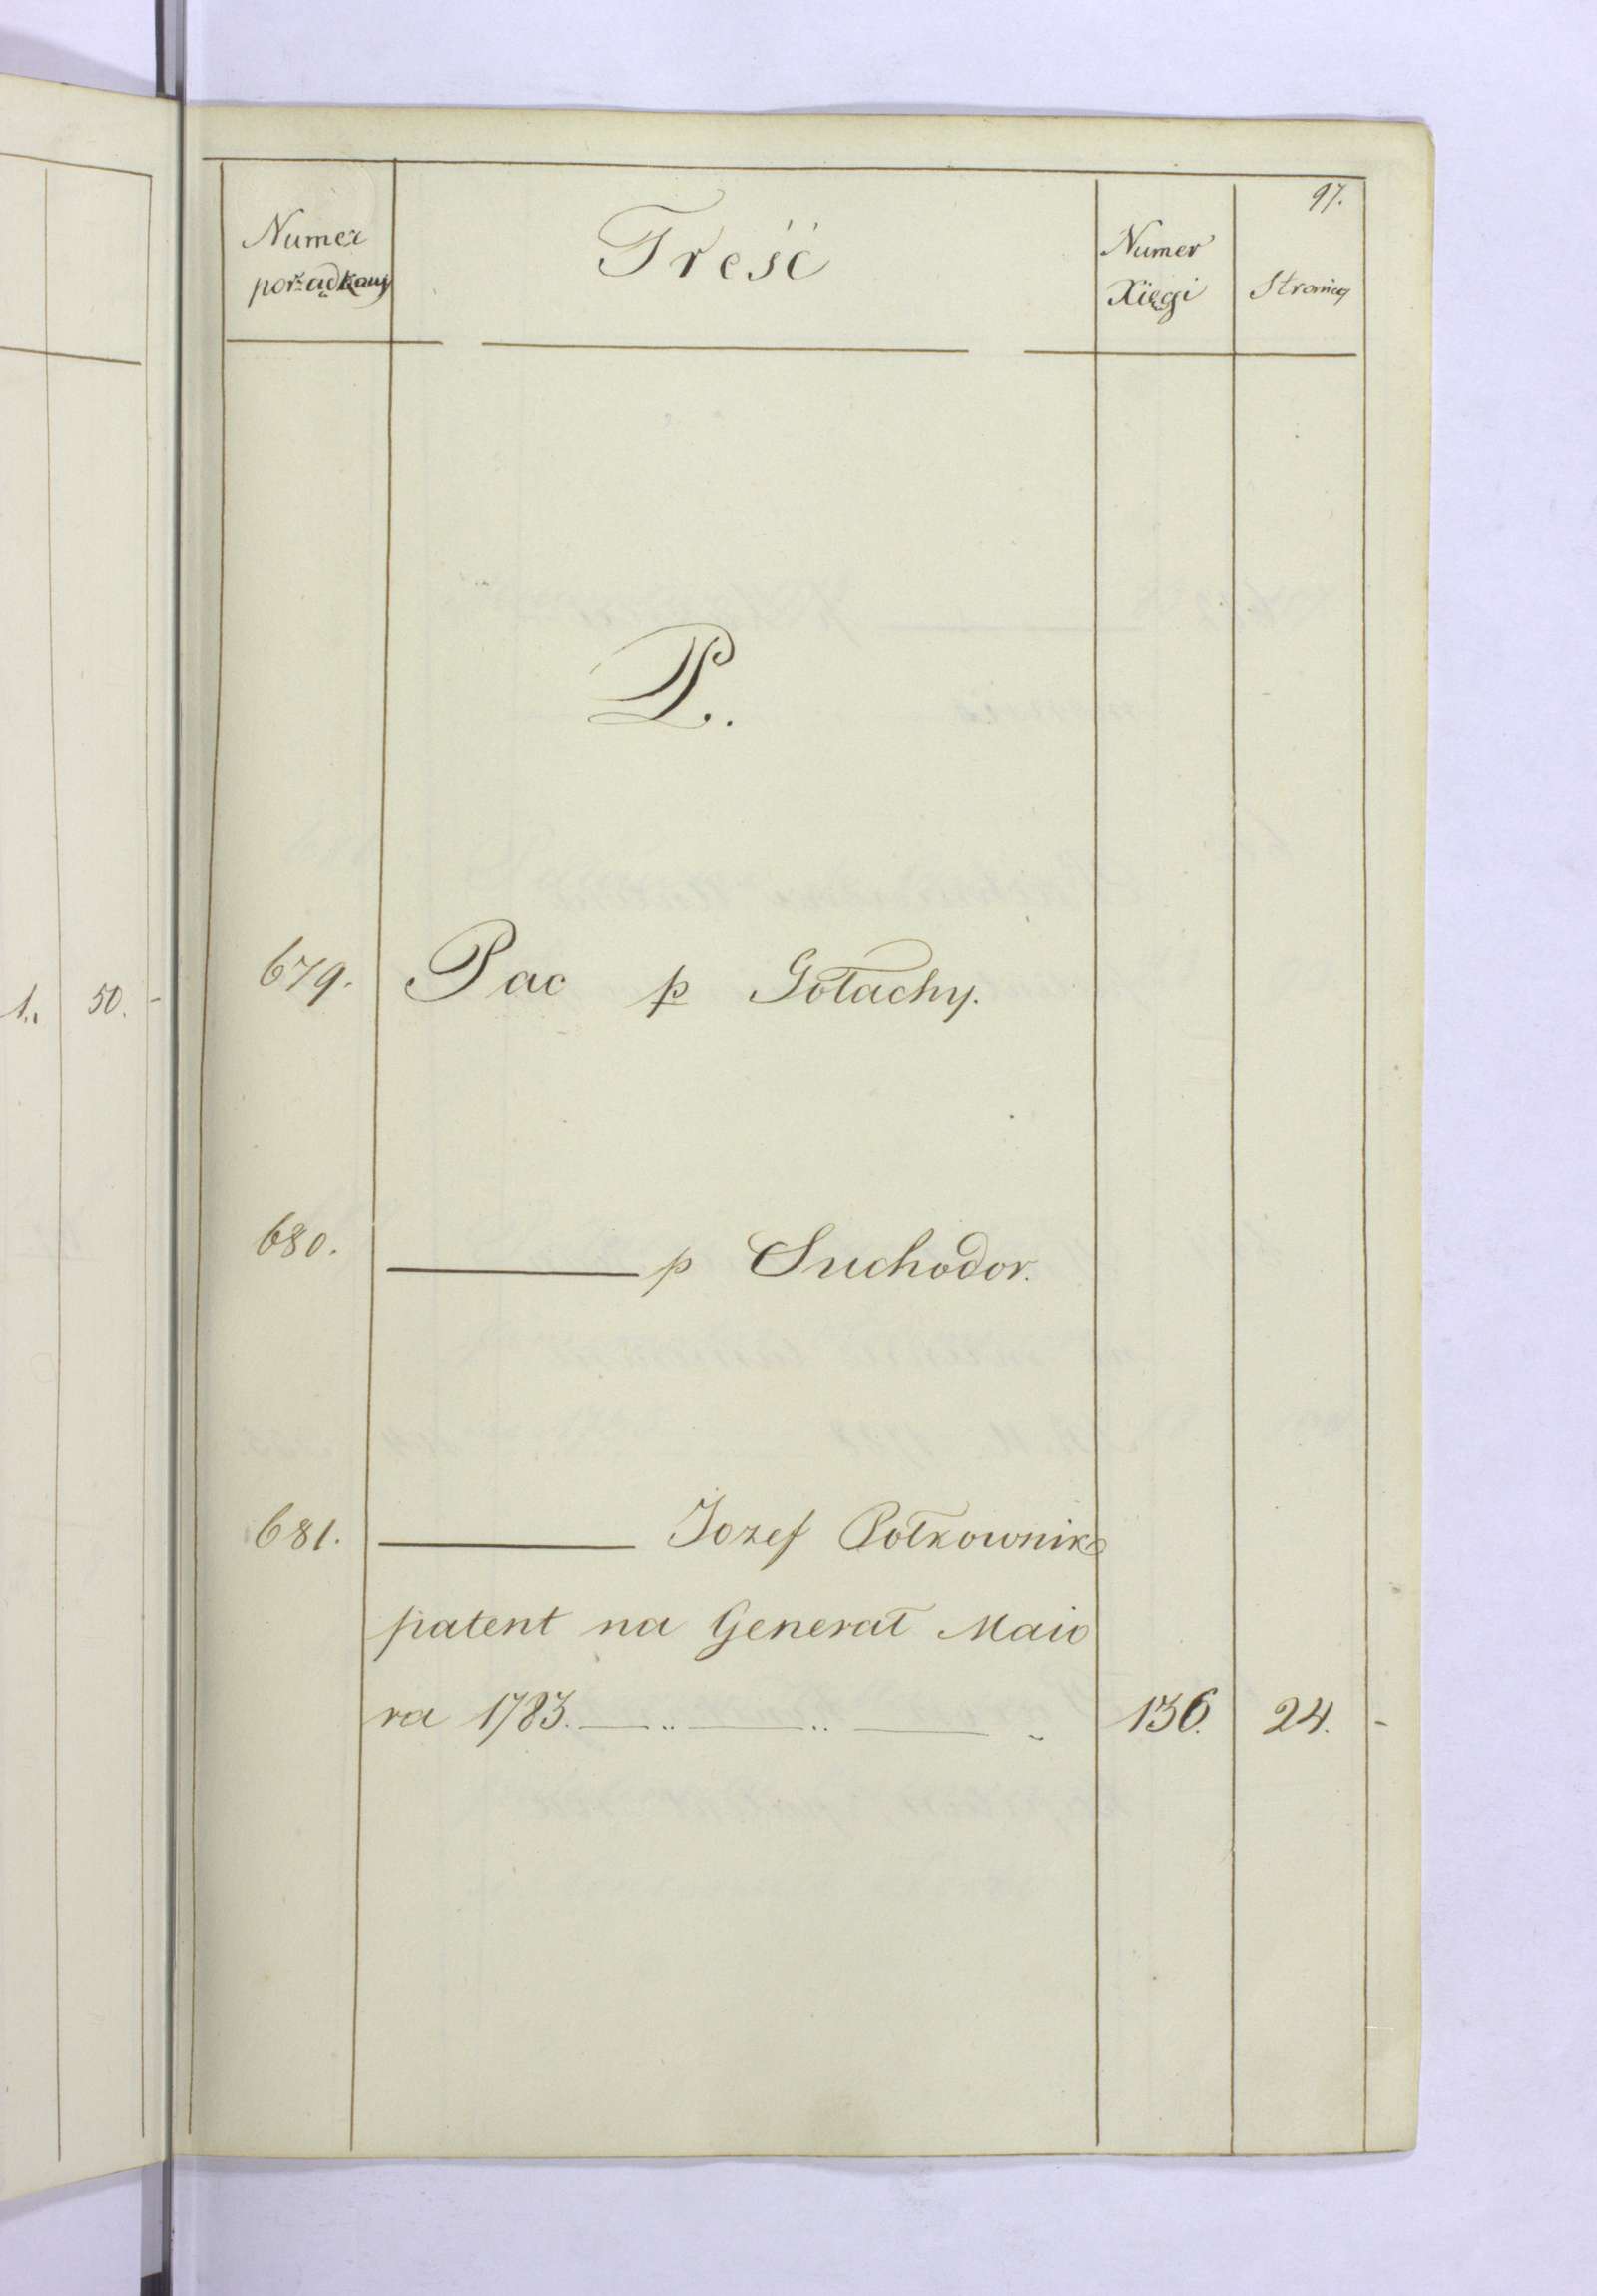 97.
Numer porządkowy
Treść
Numer Xięgi
Stronicy
P.
1. 50. -
679. Pac p Gołachy.
680. ——— p Suchodor.
681. ——— Jozef Połkownik
patent na Generał Maio
ra 1783. —..—..— - 136. 24. -